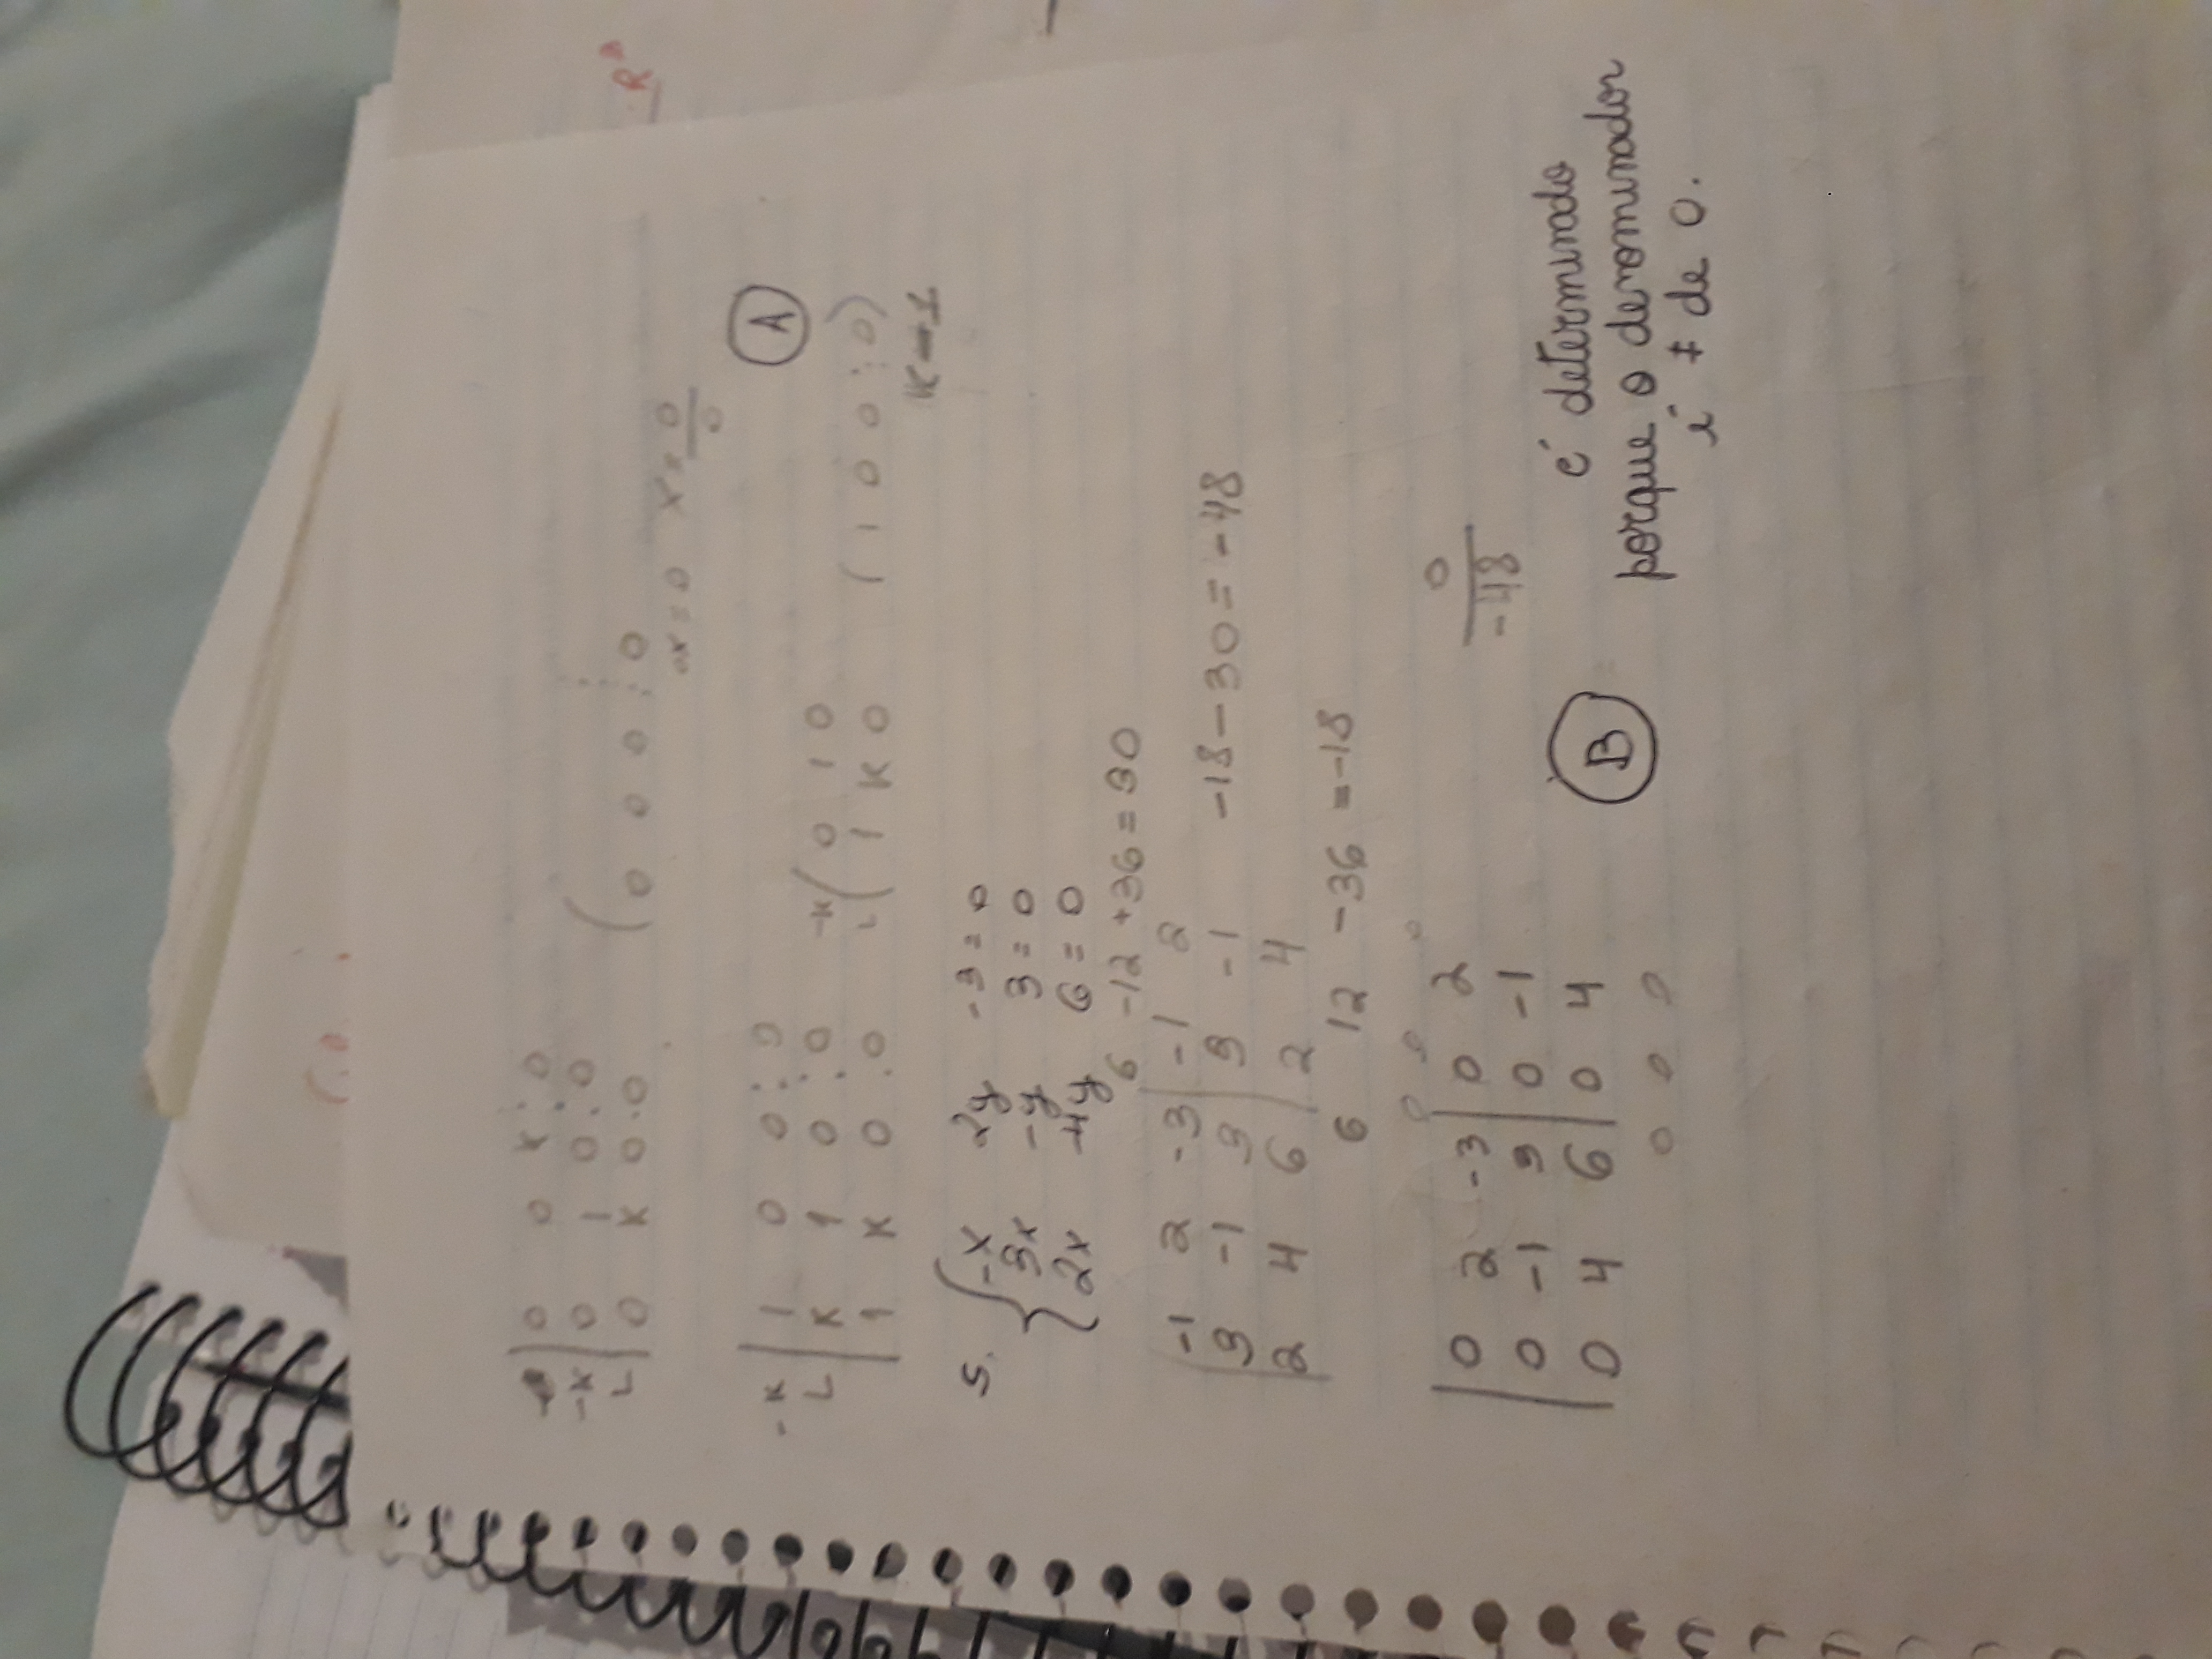 0 0 K : 0
-K 0 1 0 : 0
L 0 K 0 . 0
( 0 0 0 : 0
0x = 0 X = 0/0
A
-K 1 0 0 : 0
L K 1 0 : 0
1 K 0 . 0
-K ( 0 1 0
L ( 1 K 0
( 1 0 0 : 0 )
5. { -x 2y -3 = 0
3x -y 3 = 0
2x 4y 6 = 0
6 -12 +36 = 30
-1 2 -3 | -1 2
3 -1 3 | 3 -1
-18 - 30 = -48
2 4 6 | 2 4
6 12 -36 = -18
0 0 0
0 2 -3 | 0 2
0 -1 3 | 0 -1
0 4 6 | 0 4
0 0 0
0/-48
B
é determinado
porque o denominador
é ≠ de 0.